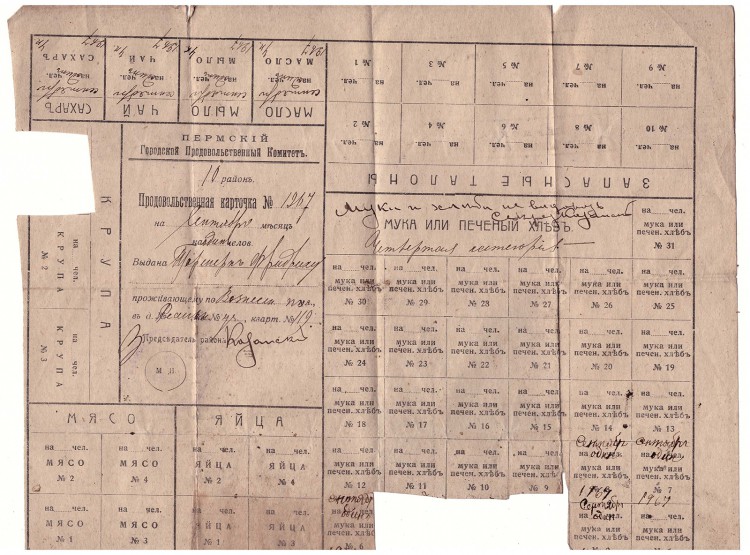 САХАРЪ
ЧАЙ
МЫЛО
МАСЛО
сентябрь
сентябрь
сентябрь
сентябрь
на один чел.
на один чел.
на один чел.
на один чел.
1267
1267
1267
1267
САХАРЪ
ЧАЙ
МЫЛО
МАСЛО
на чел. № 1
на чел. № 3
на чел. № 5
на чел. № 7
на чел. № 9
на чел. № 2
на чел. № 4
на чел. № 6
на чел. № 8
на чел. № 10
ЗАПАСНЫЕ ТАЛОНЫ
ПЕРМСКІЙ
Городской Продовольственный Комитетъ.
10 районъ.
Продовольственная карточка № 1267
на Сентябрь мѣсяцъ
на один человѣкъ
Выдана
проживающему по Вознесен. ул.
въ д. № кварт. № 119
Председатель района
М П
КРУПА
на чел.
КРУПА
№ 2
на чел.
КРУПА
№ 3
МЯСО
ЯЙЦА
на чел.
МЯСО
№ 2
на чел.
МЯСО
№ 4
на чел.
ЯЙЦА
№ 2
на чел.
ЯЙЦА
№ 4
на чел.
МЯСО
№ 1
на чел.
МЯСО
№ 3
на чел.
ЯЙЦА
№ 1
на чел.
ЯЙЦА
№ 3
Мука и хлѣбъ не выданъ
МУКА ИЛИ ПЕЧЕНЫЙ ХЛѢБЪ.
Четвертая категорія
на чел.
мука или
печен. хлѣбъ
№ 31
на чел. на чел. на чел. на чел. на чел. на чел.
мука или мука или мука или мука или мука или мука или
печен. хлѣбъ печен. хлѣбъ печен. хлѣбъ печен. хлѣбъ печен. хлѣбъ печен. хлѣбъ
№ 30 № 29 № 28 № 27 № 26 № 25
на чел. на чел. на чел. на чел. на чел. на чел.
мука или мука или мука или мука или мука или мука или
печен. хлѣбъ печен. хлѣбъ печен. хлѣбъ печен. хлѣбъ печен. хлѣбъ печен. хлѣбъ
№ 24 № 23 № 22 № 21 № 20 № 19
на чел. на чел. на чел. на чел. на чел. на чел.
мука или мука или мука или мука или мука или мука или
печен. хлѣбъ печен. хлѣбъ печен. хлѣбъ печен. хлѣбъ печен. хлѣбъ печен. хлѣбъ
№ 18 № 17 № 16 № 15 № 14 № 13
Сентябрь сентябрь
на чел. на чел. на чел. на чел. на один чел. на один чел.
мука или мука или мука или мука или мука или мука или
печен. хлѣбъ печен. хлѣбъ печен. хлѣбъ печен. хлѣбъ печен. хлѣбъ печен. хлѣбъ
№ 12 № 11 № 10 № 9 № 7
1267 1267
сентябрь Сентябрь
мука или мука или мука или
печен. хлѣбъ печен. хлѣбъ печен. хлѣбъ